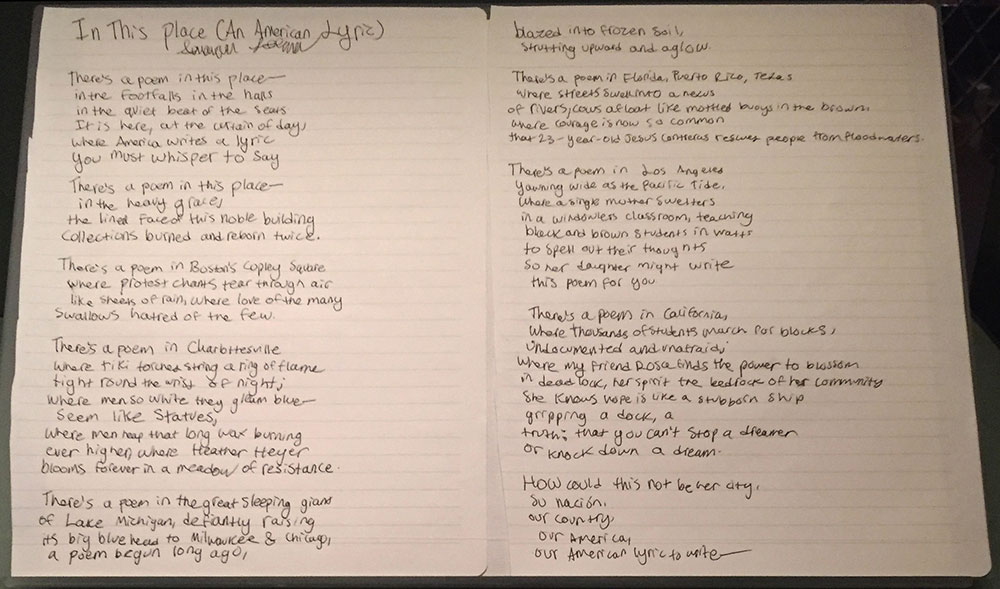 In This Place (An American Lyric)
There's a poem in this place—
in the footfalls in the halls
in the quiet beat of the seats
It is here, at the curtain of day,
where America writes a lyric
You must whisper to say
There's a poem in this place—
in the heavy grace,
the lined face of this noble building
Collections burned and reborn twice.
There's a poem in Boston's Copley Square
where protest chants tear through air
like sheets of rain, where love of the many
swallows hatred of the few.
There's a poem in Charlottesville
where tiki torches string a ring of flame
tight round the wrist of night;
where men so white they gleam blue—
seem like statues,
where men heap that long wax burning
ever higher, where Heather Heyer
blooms forever in a meadow of resistance.
There's a poem in the great sleeping giant
of Lake Michigan, defiantly raising
its big blue head to Milwaukee & Chicago,
a poem begun long ago,
blazed into frozen soil,
strutting upward and aglow.
There's a poem in Florida, Puerto Rico, Texas
where streets swell into a nexus
of rivers, cows afloat like mottled buoys in the brown,
where courage is now so common
that 23-year-old Jesus Contreras rescues people from floodwaters.
There's a poem in Los Angeles
yawning wide as the Pacific Tide,
where a single mother swelters
in a windowless classroom, teaching
black and brown students in Watts
to spell out their thoughts
so her daughter might write
this poem for you
There's a poem in California,
where thousands of students march for blocks,
undocumented and unafraid;
where my friend Rosa finds the power to blossom
in deadlock, her spirit the bedrock of her community
She knows hope is like a stubborn ship
gripping a dock, a
truth: that you can't stop a dreamer
or knock down a dream.
How could this not be her city,
su nación,
our country,
our America,
our American lyric to write—